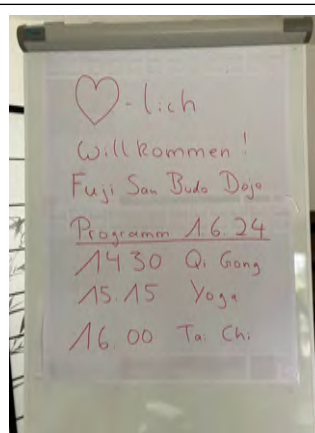 ♡-lich
Willkommen!
Fuji San Budo Dojo
Programm 1.6.24
14.30 Qi Gong
15.15 Yoga
16.00 Tai Chi